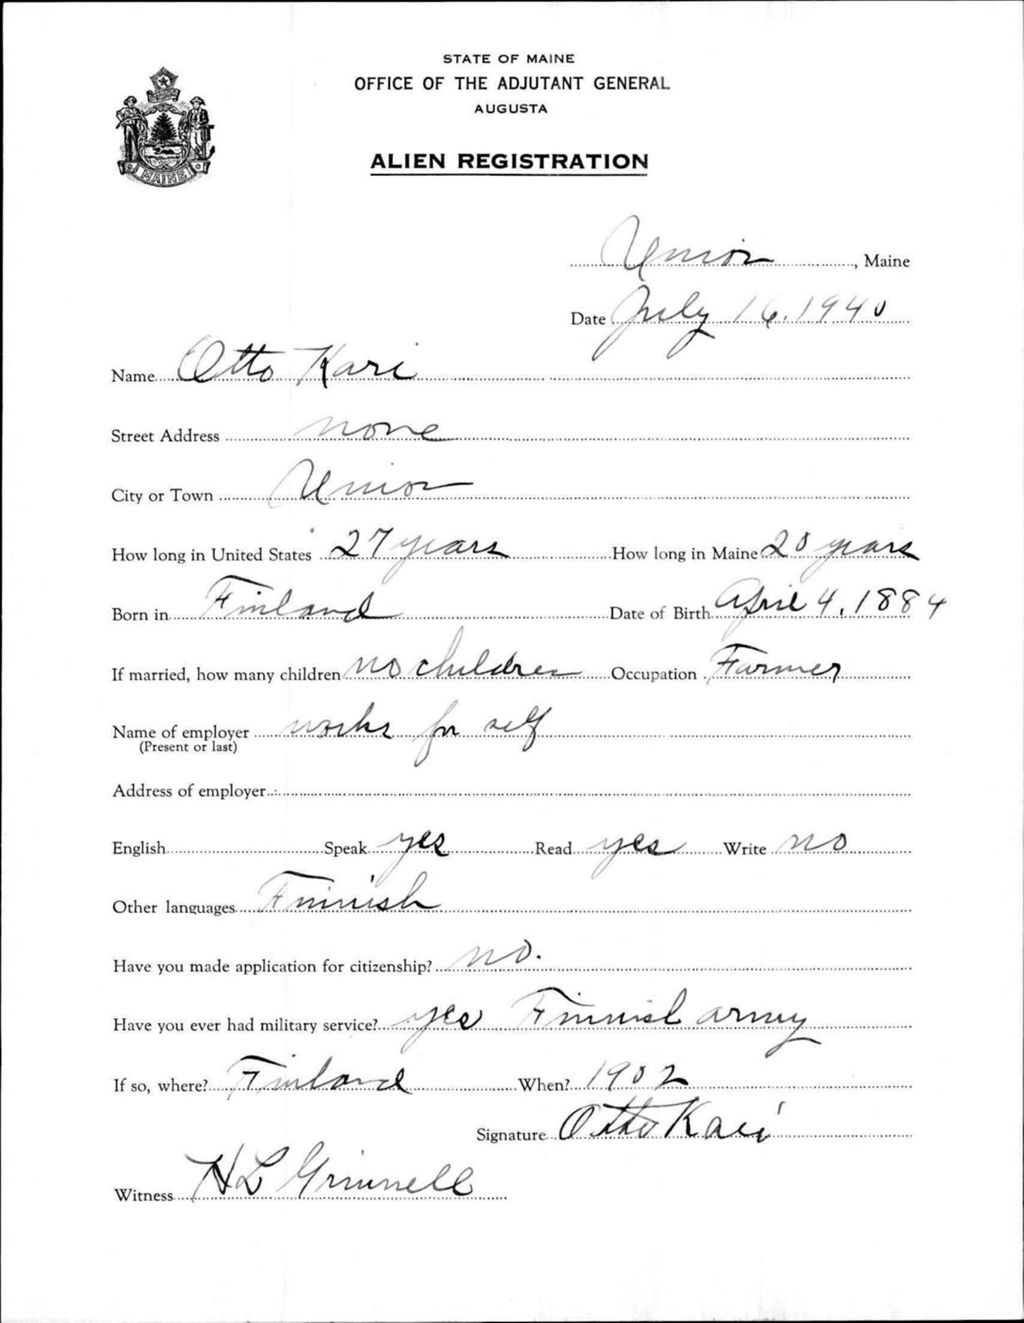 STATE OF MAINE
OFFICE OF THE ADJUTANT GENERAL
AUGUSTA
ALIEN REGISTRATION
MAINE
Union, Maine
Date July 16, 1940
Name Otto Kari
Street Address none
City or Town Union
How long in United States 27 years How long in Maine 20 years
Born in Finland Date of Birth April 4, 1884
If married, how many children no children Occupation Farmer
Name of employer works for self
(Present or last)
Address of employer
English Speak yes Read yes Write no
Other languages Finnish
Have you made application for citizenship? no.
Have you ever had military service? yes Finnish army
If so, where? Finland When? 1902
Signature Otto Kari
Witness H L Grinnell